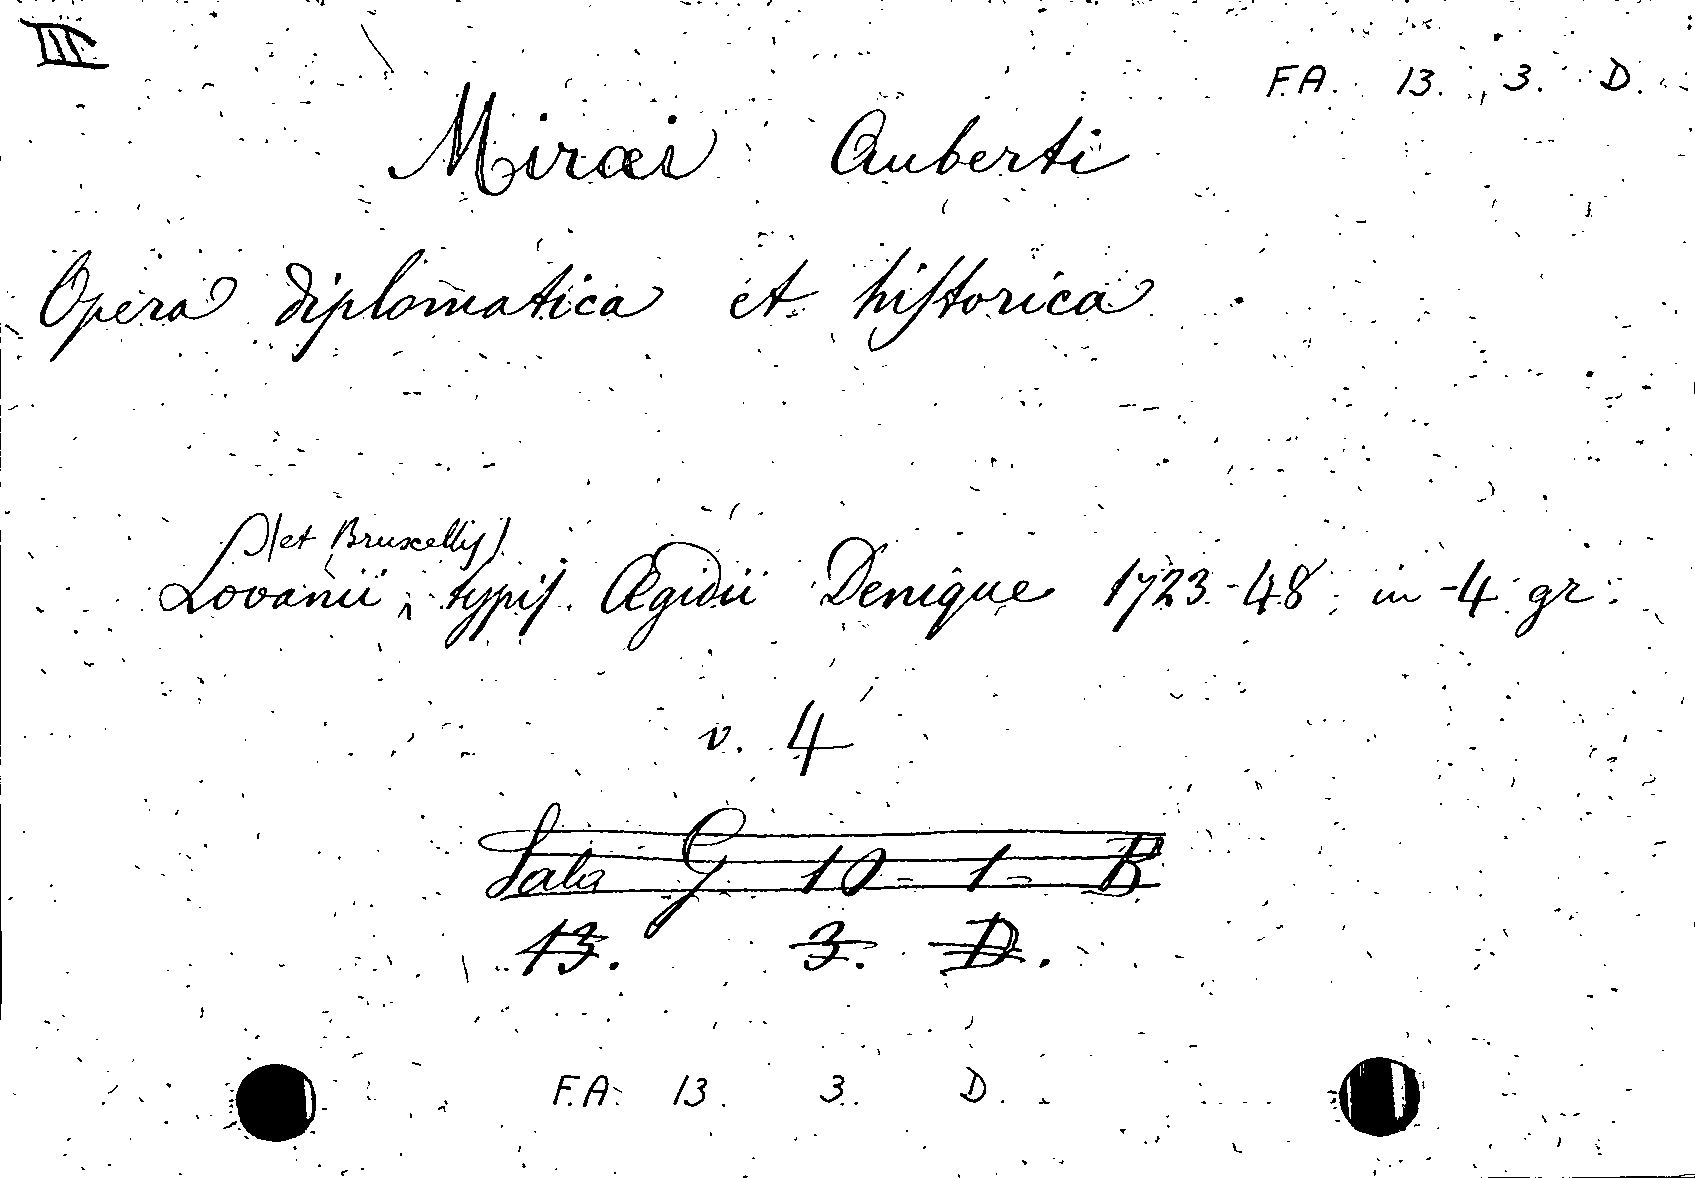 III
F.A. 13. 3. D.
Miræi Auberti
Opera diplomatica et historica
(et Bruxellis)
Lovanii, typis Ægidii Denique 1723-48 in-4 gr.
v. 4
Sala G. 10 - 1 - B
13. 3. D.
F.A. 13. 3. D.